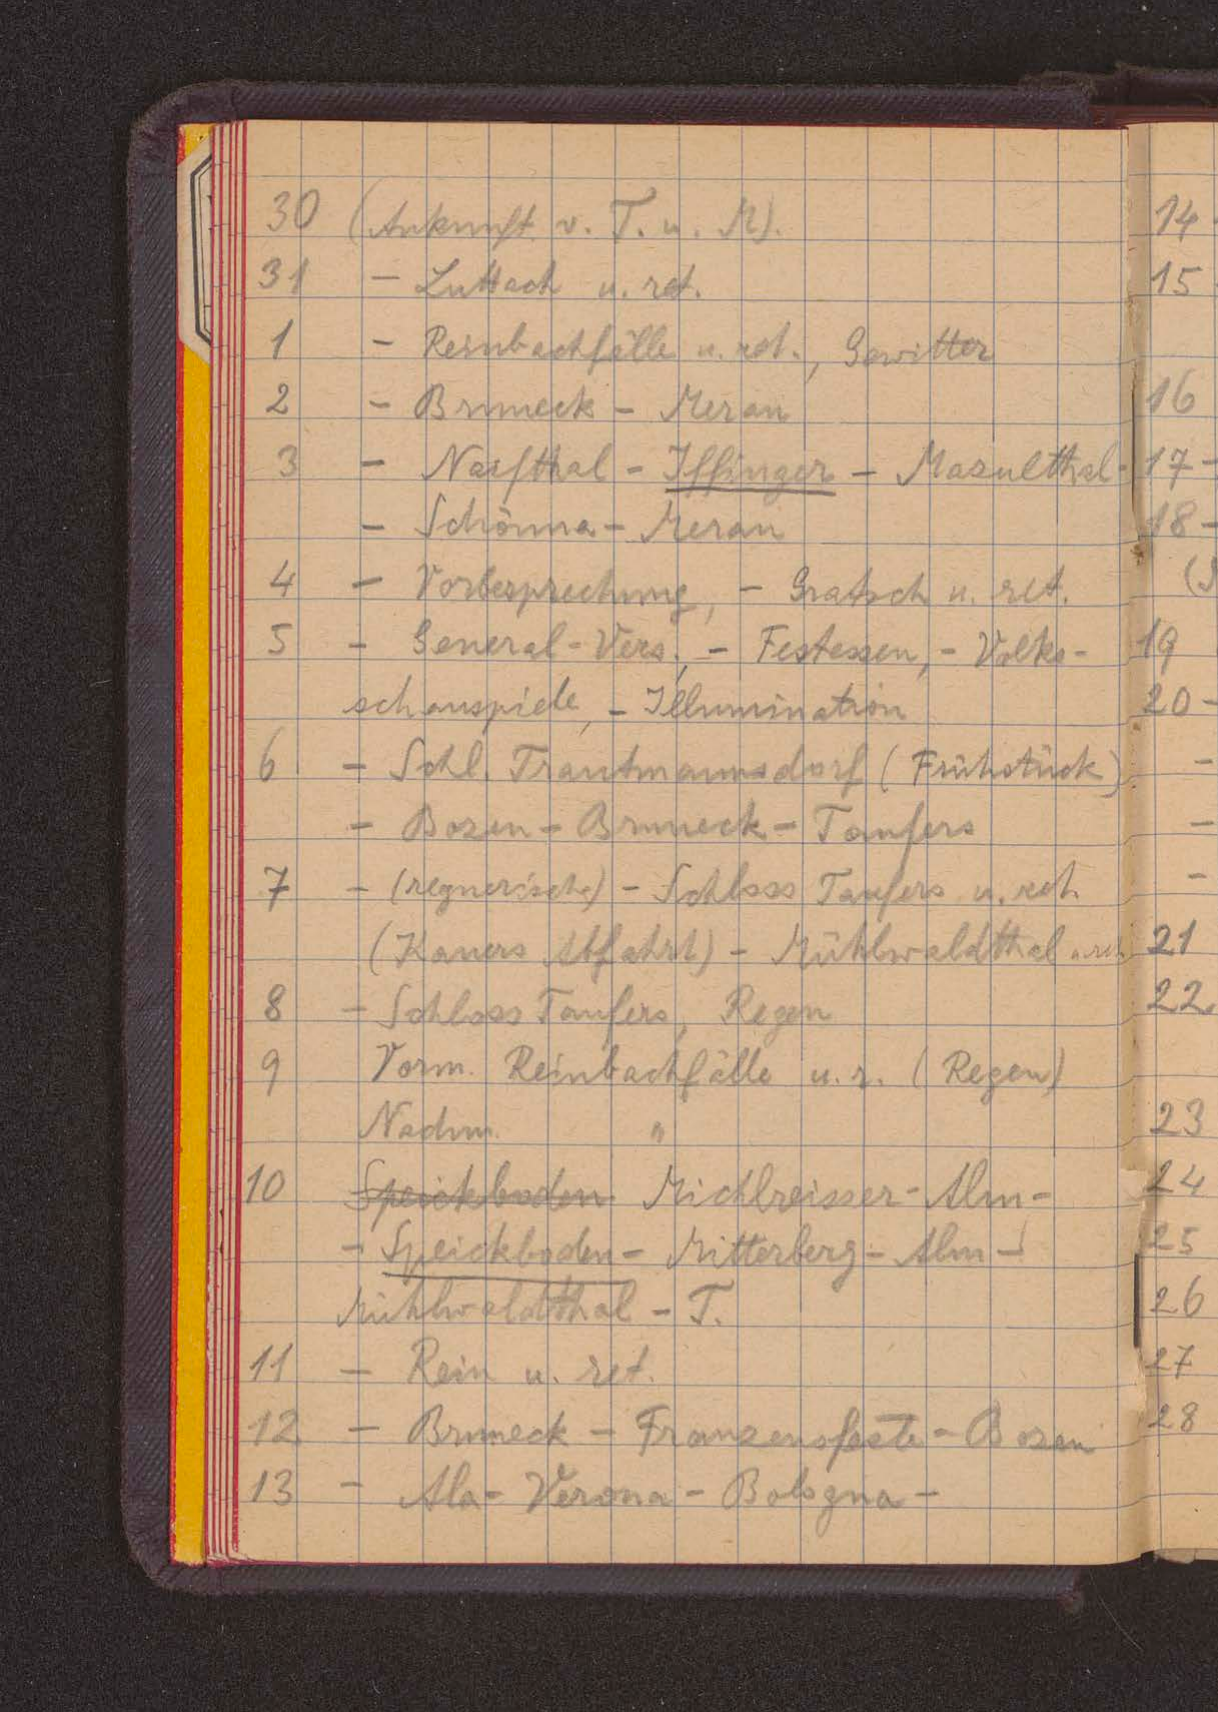 30 (Ankunft v. T. u. M).
31 – Luttach u. ret.
1 – Reinbachfälle u. ret., Gewitter
2 – Bruneck – Meran
3 – Naifthal – Iffinger – Masulthal-
– Schönna – Meran
4 – Vorbesprechung, – Gratsch u. ret.
5 – General-Vers., – Festessen, – Volks-
schauspiele, – Illumination
6 – Schl. Trautmannsdorf (Frühstück)
– Bozen – Bruneck – Taufers
7 – (regnerisch) – Schloss Taufers u. ret.
(Kaners Abfahrt) – Mühlwaldthal u. ret.
8 – Schloss Taufers, Regen
9 Vorm. Reinbachfälle u. r. (Regen)
Nachm. "
10 Speickboden Michlreisser-Alm-
– Speickboden – Mitterberg-Alm –
Mühlwaldthal – T.
11 – Rein u. ret.
12 – Bruneck – Franzensfeste – Bozen
13 – Ala – Verona – Bologna –
14
15
16
17 –
18 –
19
20 –
–
–
–
21
22
23
24
25
26
27
28